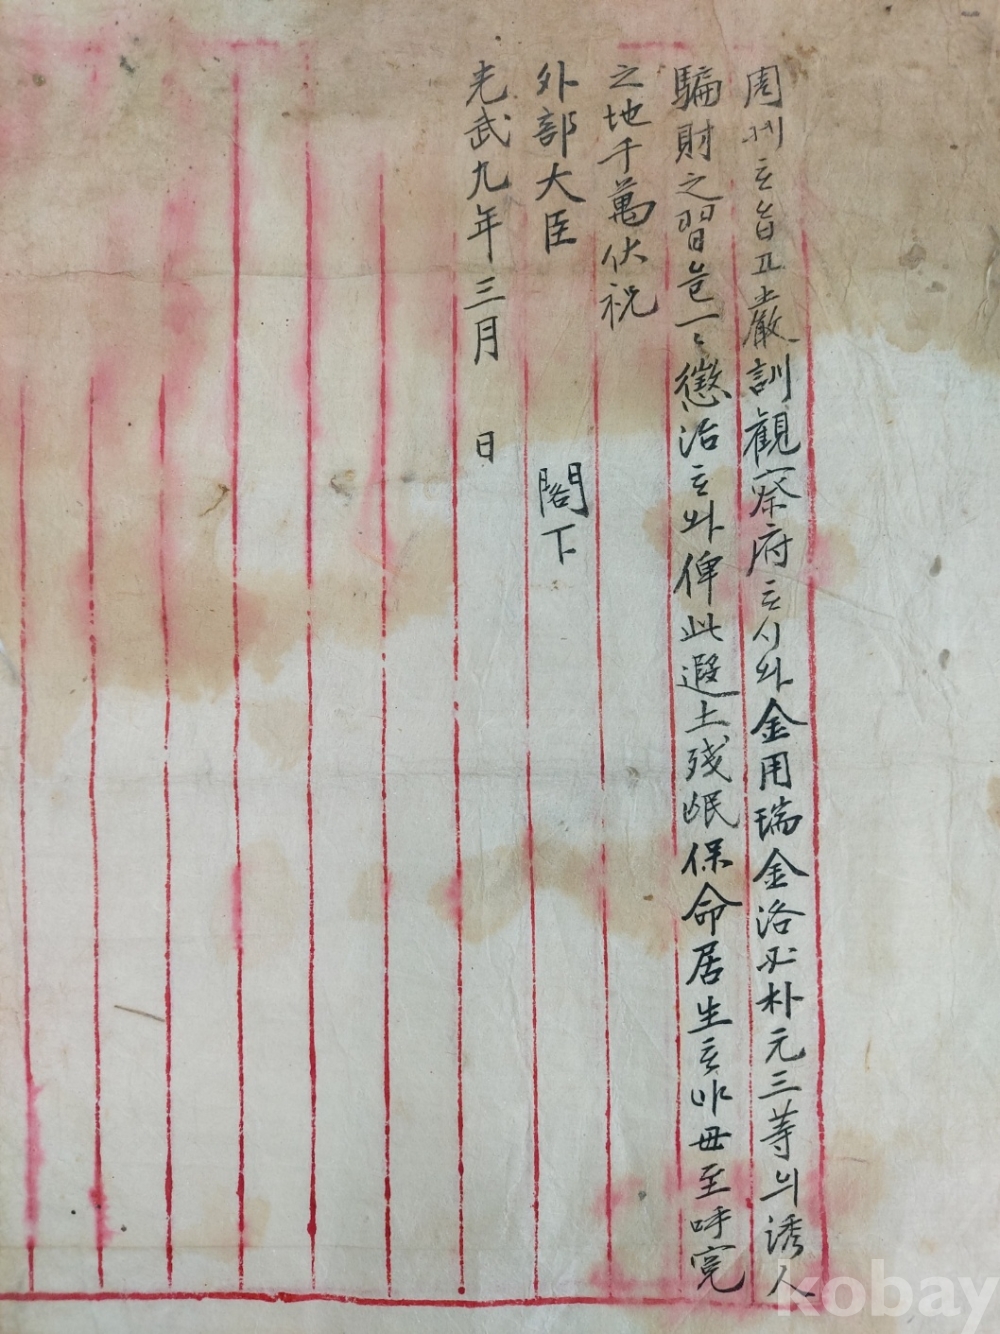 周케ᄒᆞ고嚴訓觀察府ᄒᆞ시와金用瑞金洛必朴元三等의誘人
騙財之習을一〻懲治ᄒᆞ와俾此遐土殘氓保命居生ᄒᆞ야毋至呼寃
之地千萬伏祝
外部大臣 閤下
光武九年三月 日
kobay